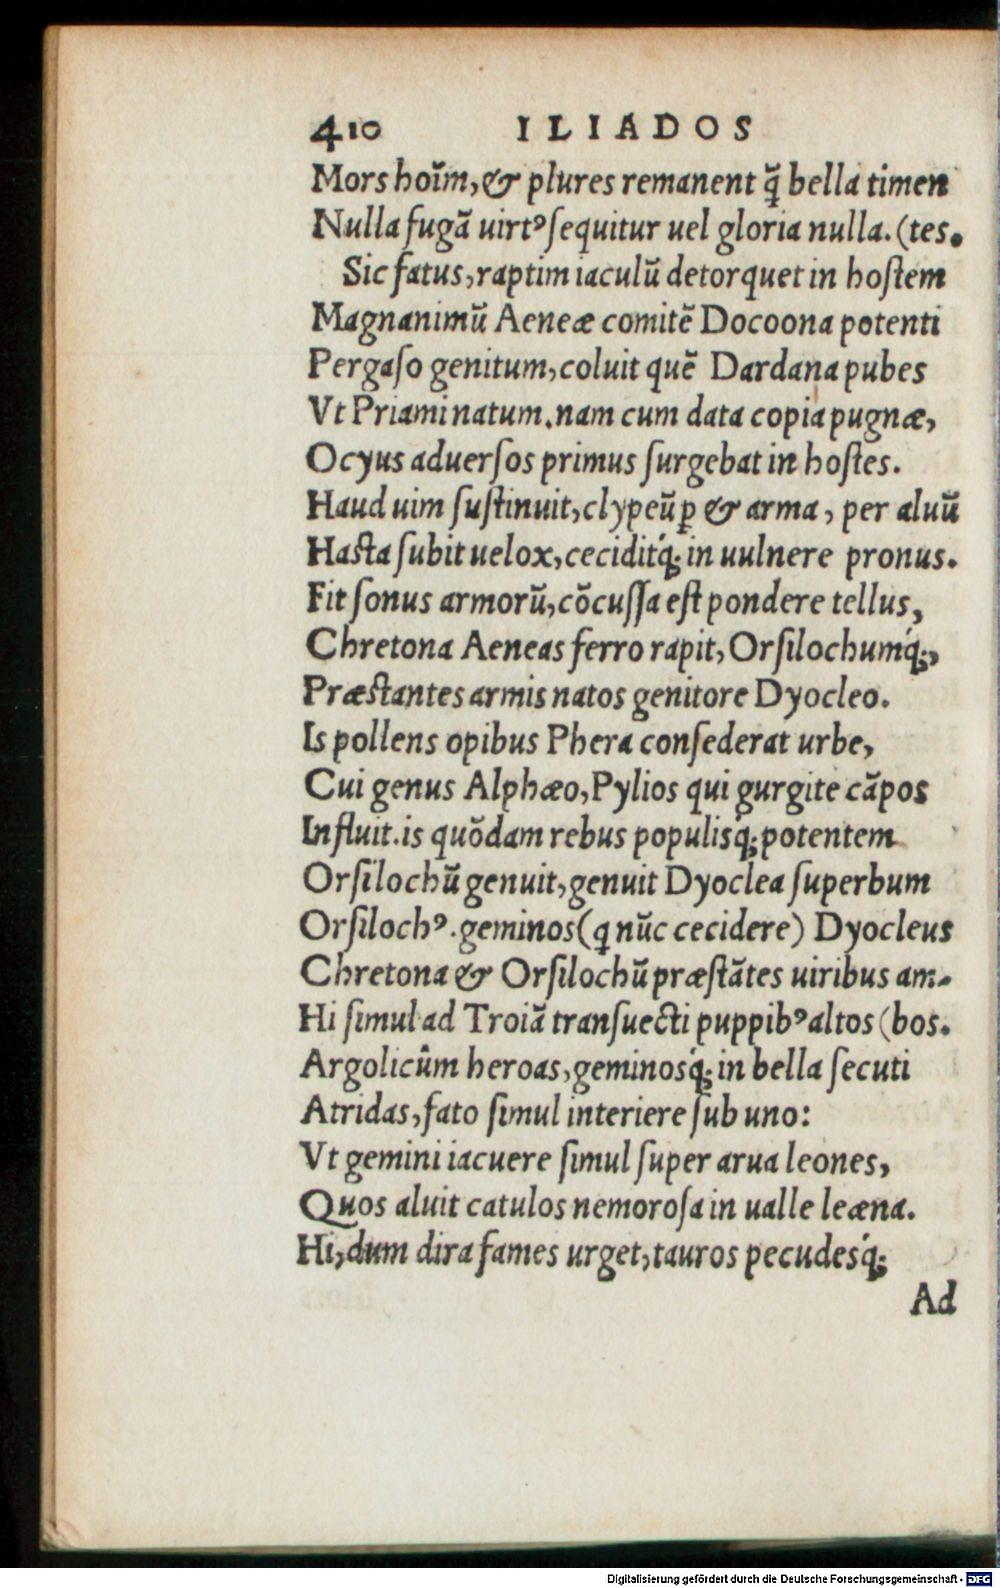 410 ILIADOS
Mors hoĩm, & plures remanent q̃ bella timen
Nulla fugã uirtꝰ ſequitur uel gloria nulla. (tes.
Sic fatus, raptim iaculũ detorquet in hoſtem
Magnanimũ Aeneæ comitẽ Docoona potenti
Pergaſo genitum, coluit quẽ Dardana pubes
Vt Priami natum. nam cum data copia pugnæ,
Ocyus aduerſos primus ſurgebat in hoſtes.
Haud uim ſuſtinuit, clypeũ ꝑ & arma, per aluũ
Haſta ſubit uelox, ceciditq́; in uulnere pronus.
Fit ſonus armorũ, cõcuſſa eſt pondere tellus,
Chretona Aeneas ferro rapit, Orſilochumq́;,
Præſtantes armis natos genitore Dyocleo.
Is pollens opibus Phera conſederat urbe,
Cui genus Alphæo, Pylios qui gurgite cãpos
Influit. is quõdam rebus populisq́; potentem
Orſilochũ genuit, genuit Dyoclea ſuperbum
Orſilochꝰ. geminos (ꝗ nũc cecidere) Dyocleus
Chretona & Orſilochũ præſtãtes uiribus am-
Hi ſimul ad Troiã tranſuecti puppibꝰ altos (bos.
Argolicûm heroas, geminosq́; in bella ſecuti
Atridas, fato ſimul interiere ſub uno:
Vt gemini iacuere ſimul ſuper arua leones,
Quos aluit catulos nemoroſa in ualle leæna.
Hi, dum dira fames urget, tauros pecudesq́;
Ad
Digitalisierung gefördert durch die Deutsche Forschungsgemeinschaft - DFG